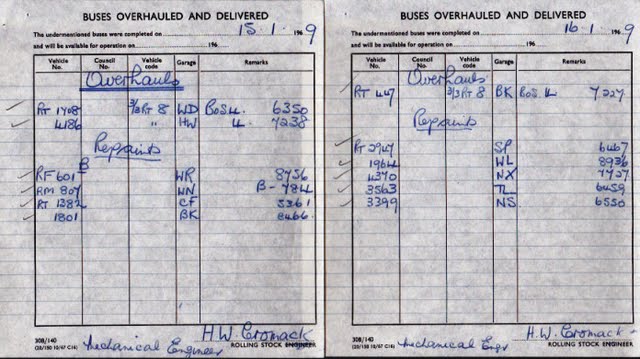 BUSES OVERHAULED AND DELIVERED
The undermentioned buses were completed on 15.1. 1969
and will be available for operation on 196
Vehicle No. Council No. Vehicle code Garage Remarks
Overhauls
RT 1708 3/3RT 8 WD BoS.4. 6350
4186 " HW 4. 7238
Repaints
B
RF 601 WR 8756
RM 807 WN B-784
RT 1382 CF 5361
1801 BK 8466
308/140
(20/150 10/67 C16)
Mechanical Engineer
H.W. Cromack
ROLLING STOCK ENGINEER
BUSES OVERHAULED AND DELIVERED
The undermentioned buses were completed on 16.1. 1969
and will be available for operation on 196
Vehicle No. Council No. Vehicle code Garage Remarks
Overhauls
RT 447 3/3RT 8 BK BoS. 4 7227
Repaints
RT 2947 SP 6467
1964 WL 8936
4370 NX 7727
3563 TL 6459
3399 NS 6550
308/140
Mechanical Engr
H.W. Cromack
ROLLING STOCK ENGINEER